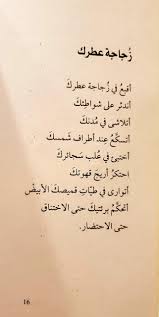 زُجاجة عطرك
أقبعُ في زُجاجة عطركَ
أندثر على شواطئكَ
أتلاشى في مُدنكَ
أتسكّعُ عِند أطراف شمسكَ
أختبئ في عُلب سجائركَ
احتكرُ أريجَ قهوتكَ
أتوارى في طيّاتِ قميصكَ الأبيضْ
أتحكّمُ برئتيكَ حتى الاختناق
حتى الاحتضار.
16